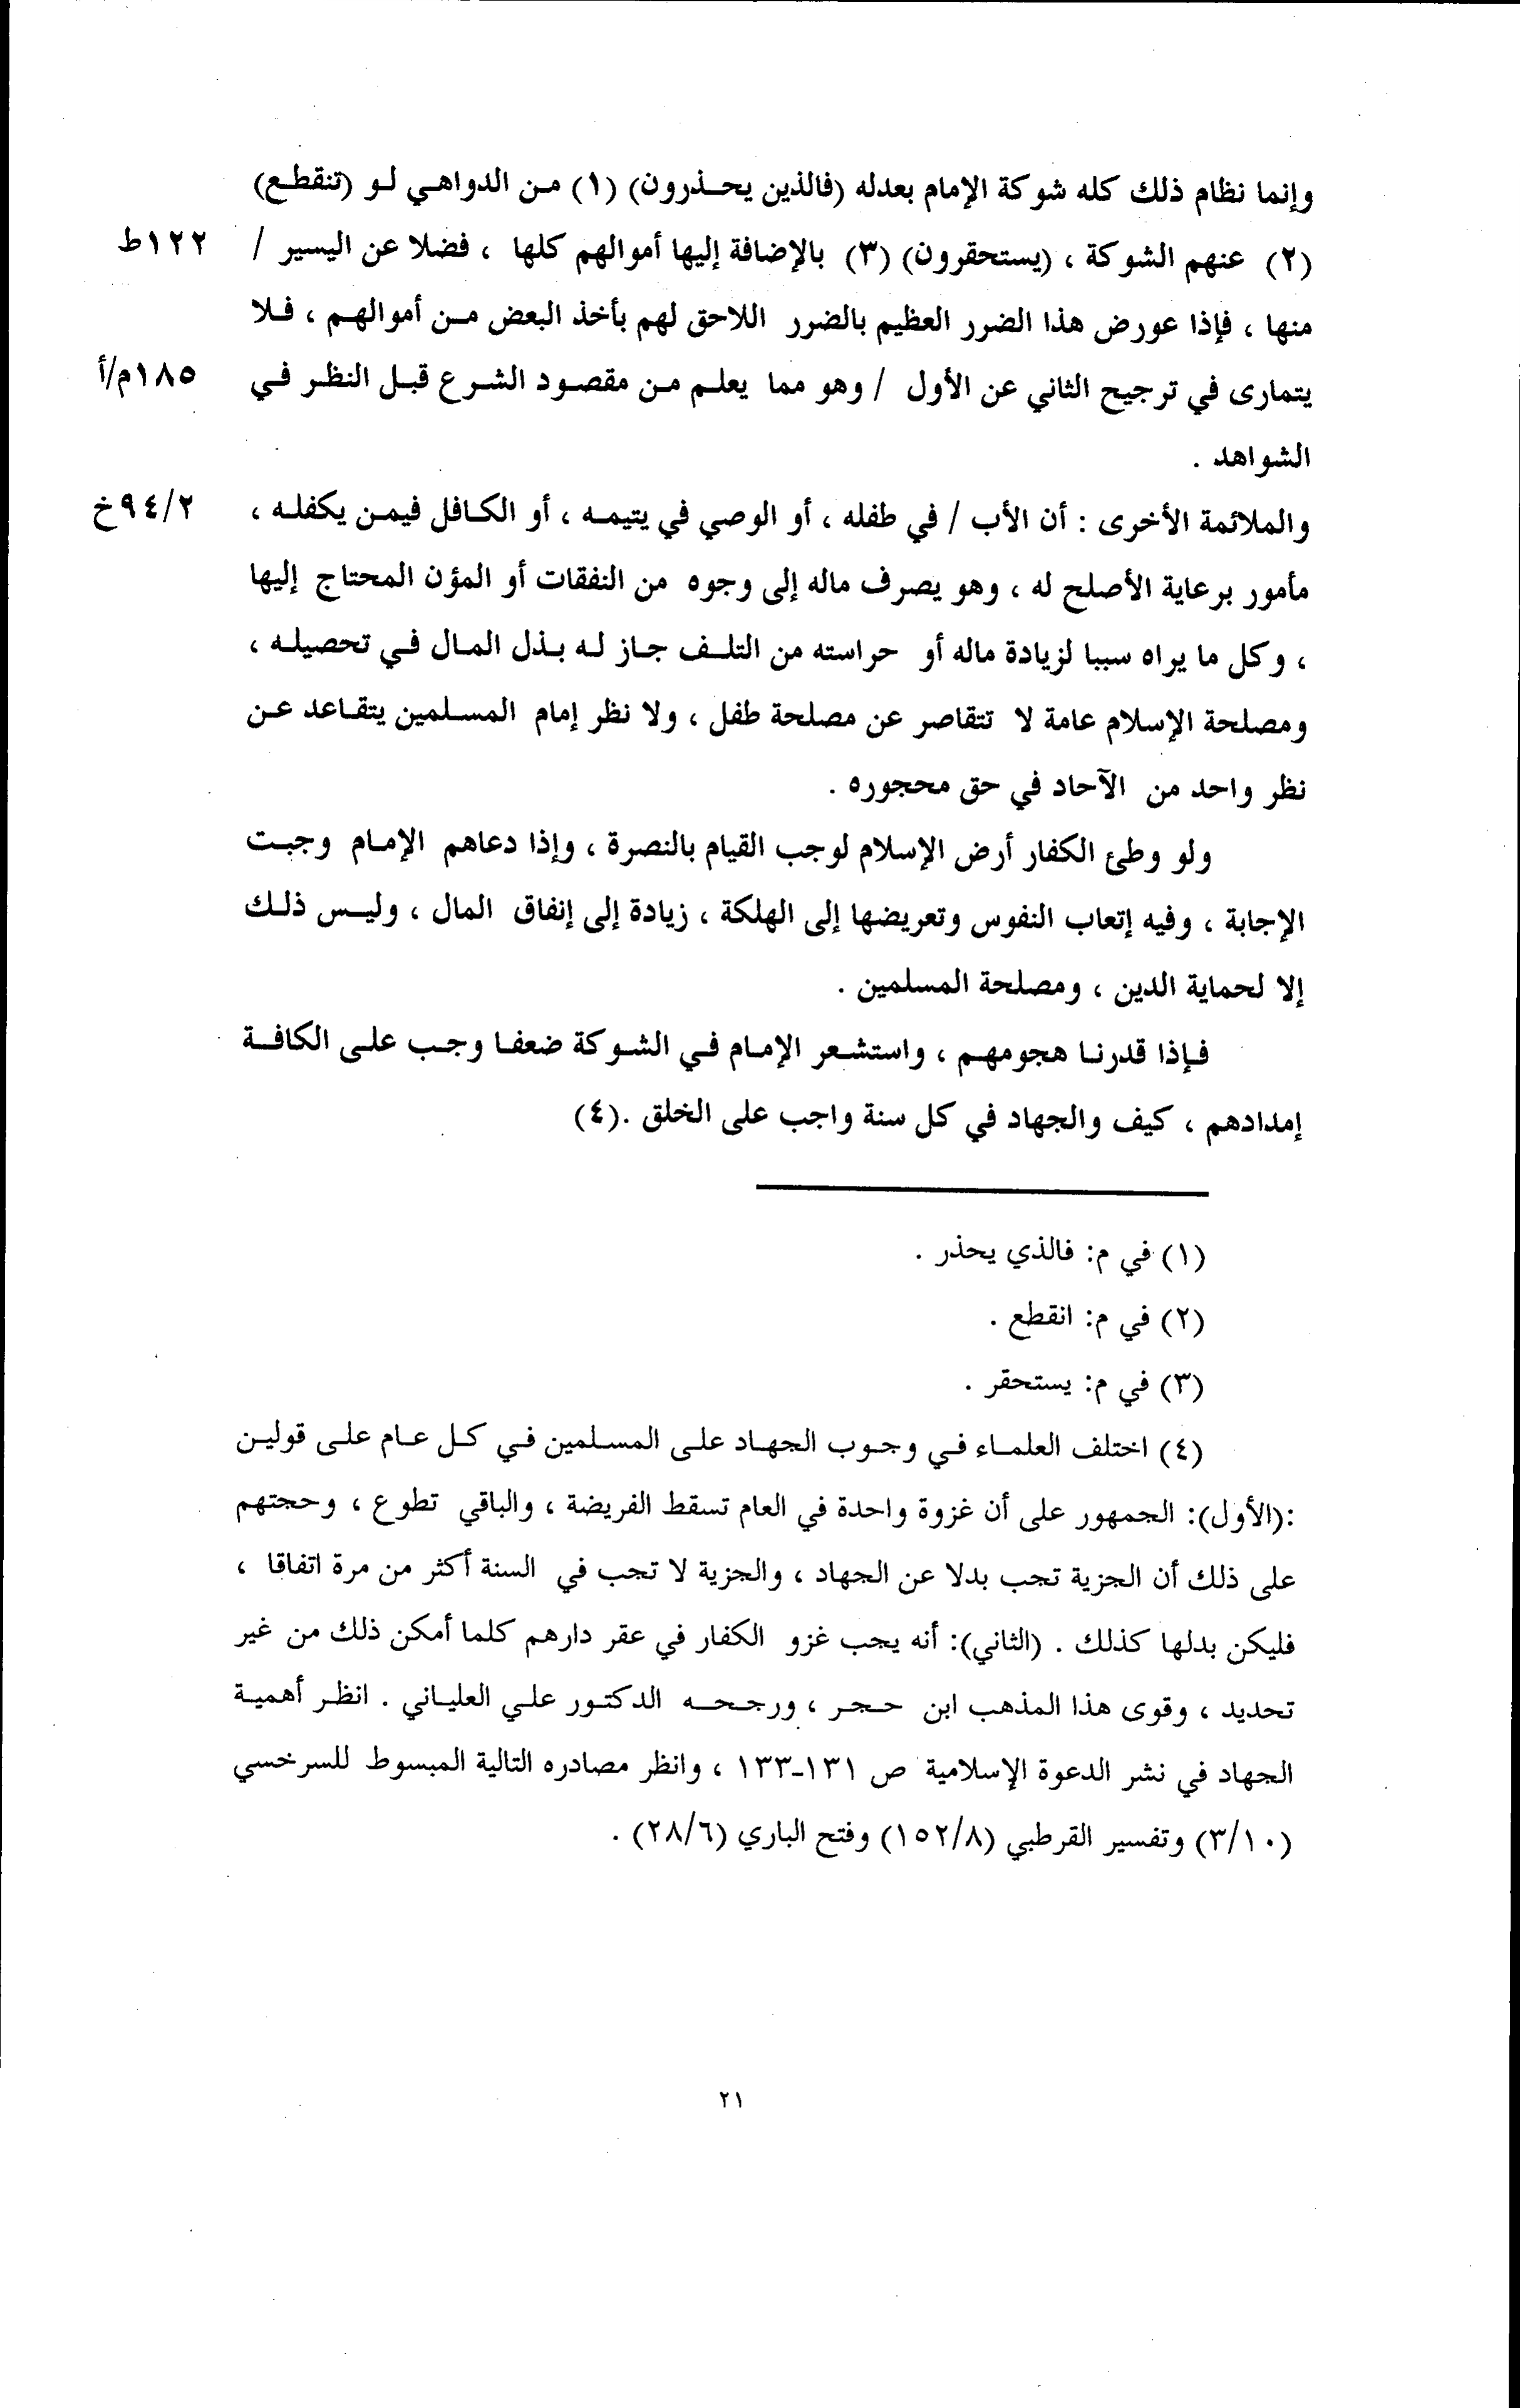 وإنما نظام ذلك كله شوكة الإمام بعدله (فالذين يحذرون) (١) من الدواهي لو (تنقطع)
(٢) عنهم الشوكة ، (يستحقرون) (٣) بالإضافة إليها أموالهم كلها ، فضلا عن اليسير / ١٢٢ط
منها ، فإذا عورض هذا الضرر العظيم بالضرر اللاحق لهم بأخذ البعض من أموالهم ، فلا
يتمارى في ترجيح الثاني عن الأول / وهو مما يعلم من مقصود الشرع قبل النظر في ١٨٥م/أ
الشواهد .
والملائمة الأخرى : أن الأب / في طفله ، أو الوصي في يتيمه ، أو الكافل فيمن يكفله ، ٩٤/٢خ
مأمور برعاية الأصلح له ، وهو يصرف ماله إلى وجوه من النفقات أو المؤن المحتاج إليها
، وكل ما يراه سببا لزيادة ماله أو حراسته من التلف جاز له بذل المال في تحصيله ،
ومصلحة الإسلام عامة لا تتقاصر عن مصلحة طفل ، ولا نظر إمام المسلمين يتقاعد عن
نظر واحد من الآحاد في حق محجوره .
ولو وطئ الكفار أرض الإسلام لوجب القيام بالنصرة ، وإذا دعاهم الإمام وجبت
الإجابة ، وفيه إتعاب النفوس وتعريضها إلى الهلكة ، زيادة إلى إنفاق المال ، وليس ذلك
إلا لحماية الدين ، ومصلحة المسلمين .
فإذا قدرنا هجومهم ، واستشعر الإمام في الشوكة ضعفا وجب على الكافة
إمدادهم ، كيف والجهاد في كل سنة واجب على الخلق .(٤)
(١) في م: فالذي يحذر .
(٢) في م: انقطع .
(٣) في م: يستحقر .
(٤) اختلف العلماء في وجوب الجهاد على المسلمين في كل عام على قولين
:(الأول): الجمهور على أن غزوة واحدة في العام تسقط الفريضة ، والباقي تطوع ، وحجتهم
على ذلك أن الجزية تجب بدلا عن الجهاد ، والجزية لا تجب في السنة أكثر من مرة اتفاقا ،
فليكن بدلها كذلك . (الثاني): أنه يجب غزو الكفار في عقر دارهم كلما أمكن ذلك من غير
تحديد ، وقوى هذا المذهب ابن حجر ، ورجحه الدكتور علي العلياني . انظر أهمية
الجهاد في نشر الدعوة الإسلامية ص ١٣١-١٣٣ ، وانظر مصادره التالية المبسوط للسرخسي
(٣/١٠) وتفسير القرطبي (١٥٢/٨) وفتح الباري (٢٨/٦) .
٢١